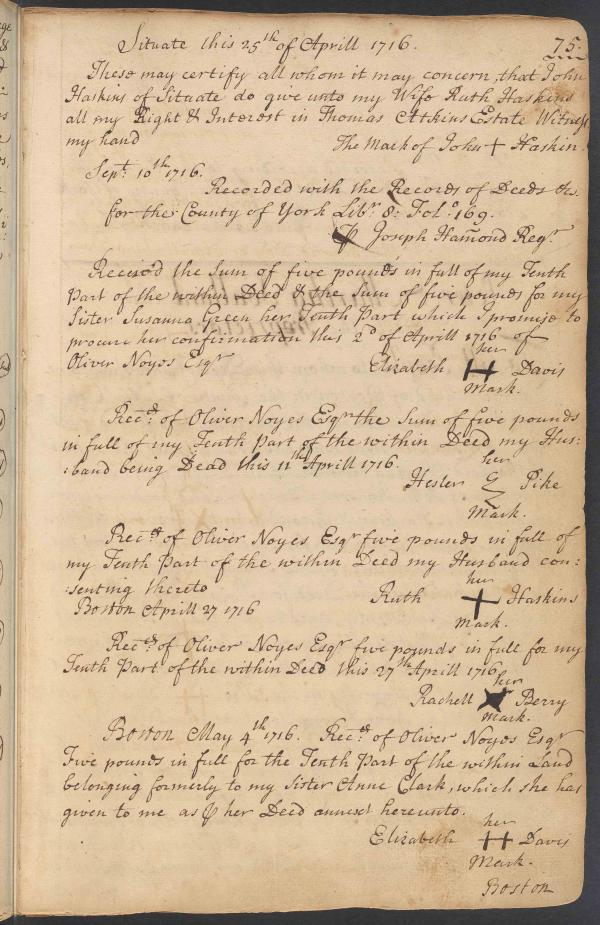 75.
Situate this 25th of Aprill 1716.
These may certify all whom it may concern, that John
Haskins of Situate do give unto my Wife Ruth Haskins
all my Right & Interest in Thomas Atkins Estate Witness
my hand The Mark of John + Haskin
Sept. 10th 1716.
Recorded with the Records of Deeds &c.
for the County of York Libr. 8: Folo. 169.
℘ Joseph Hamond Regr.
Receiv'd the Sum of five pounds in full of my Tenth
Part of the within Deed & the Sum of five pounds for my
Sister Susanna Green her Tenth Part which I promise to
procure her confirmation this 2d of Aprill 1716 of
Oliver Noyes Esqr
her
Elizabeth H Davis
Mark.
Recd. of Oliver Noyes Esqr the Sum of five pounds
in full of my Tenth Part of the within Deed my Hus:
:band being Dead this 11th Aprill 1716.
her
Hester Pike
Mark.
Recd. of Oliver Noyes Esqr five pounds in full of
my Tenth Part of the within Deed my Husband con:
:senting thereto
her
Boston Aprill 27 1716 Ruth + Haskins
Mark.
Recd. of Oliver Noyes Esqr five pounds in full for my
Tenth Part of the within Deed this 27th Aprill 1716
her
Rachell X Berry
Mark.
Boston May 4th 1716. Recd. of Oliver Noyes Esqr
Five pounds in full for the Tenth Part of the within Land
belonging formerly to my Sister Anne Clark, which she has
given to me as ℘ her Deed annext hereunto.
her
Elizabeth H Davis
Mark.
Boston